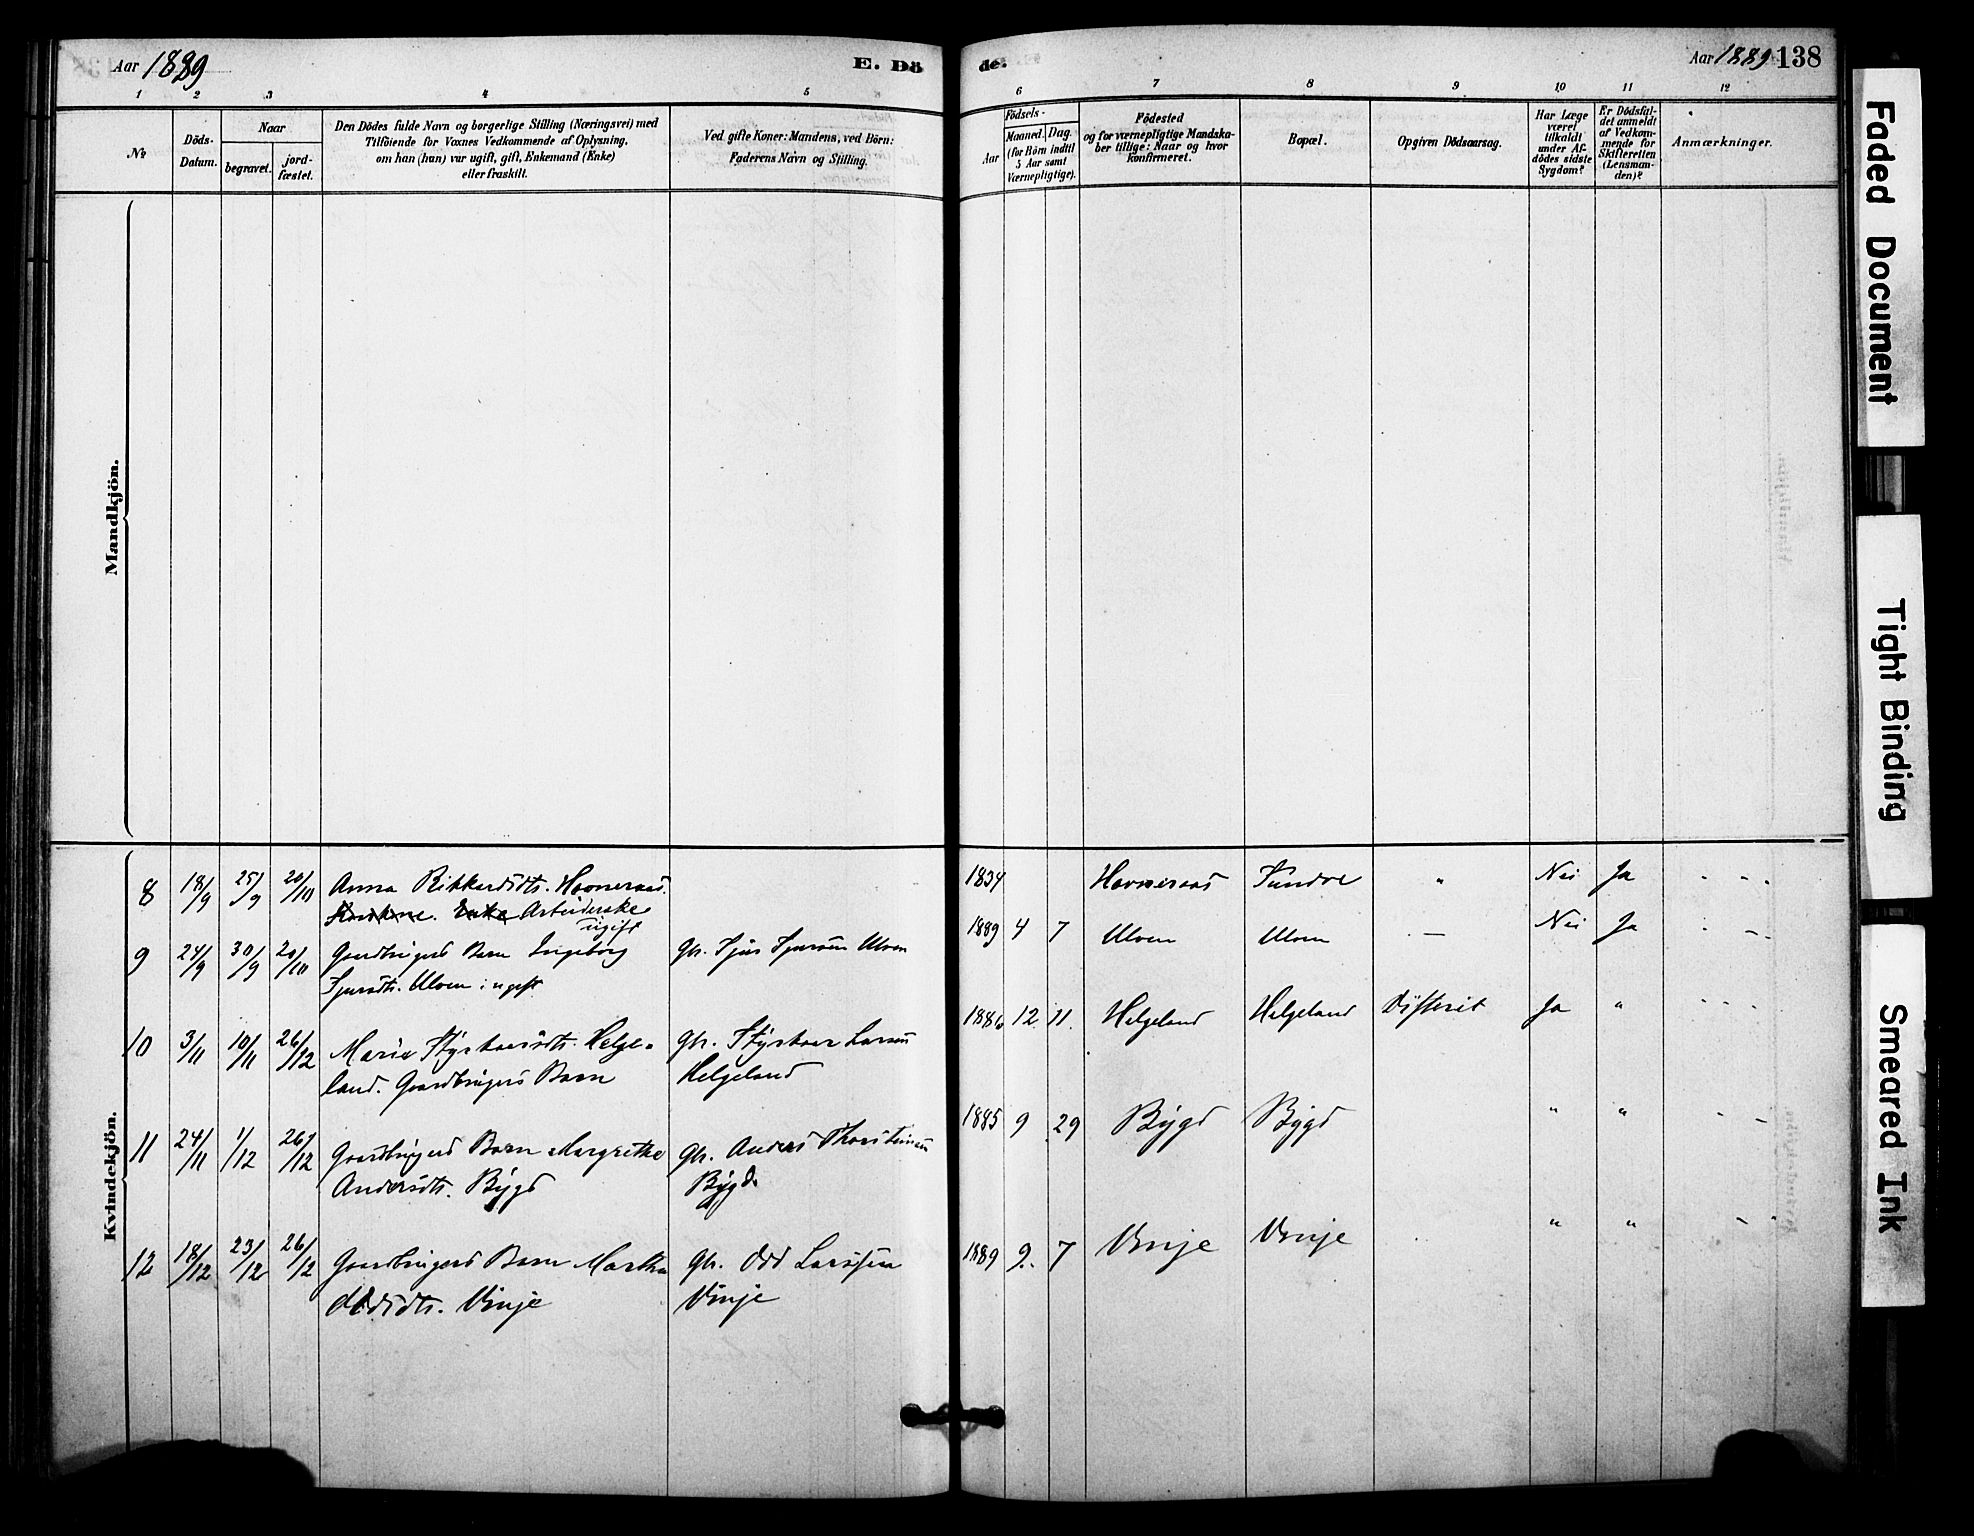 Aar 1889
E. Dö
de.
Aar 1889 138
1 2 3 4 5 6 7 8 9 10 11 12
№
Döds-
Datum.
Naar
begravet.
jord-
fæstet.
Den Dödes fulde Navn og borgerlige Stilling (Næringsvei) med
Tilföiende for Voxnes Vedkommende af Oplysning,
om han (hun) var ugift, gift, Enkemand (Enke)
eller fraskilt.
Ved gifte Koner: Mandens, ved Börn:
Faderens Navn og Stilling.
Födsels-
Aar
Maaned. Dag.
(for Börn indtil
5 Aar samt
Værnepligtige).
Födested
og for værnepligtige Mandska-
ber tillige: Naar og hvor
konfirmeret.
Bopæl.
Opgiven Dödsaarsag.
Har Læge
været
tilkaldt
under Af-
dödes sidste
Sygdom?
Er Dödsfal-
det anmeldt
af Vedkom-
mende for
Skifteretten
(Lensman-
den)?
Anmærkninger.
Mandkjön.
Kvindekjön.
8 18/9 25/9 20/10 Anna Rikkardsdts. Havneraas. 1834 Havneraas Sundve " Nei Ja - - -
Enke Arbeiderske
ugift
9 24/9 30/9 20/10 Gaardbrugers Barn Ingeborg Gbr. Sjur Sjursen Ulven 1889 4 7 Ulven Ulven — Nei Ja - - -
Sjursdtr. Ulven : ugift
10 3/11 10/11 26/12 Marie Styrkaarsdtr. Helge- Gbr. Styrkaar Larsen 1886 12 11. Helgeland Helgeland Difterit Ja " - - -
land. Gaardbrugers Barn Helgeland
11 24/11 1/12 26/12 Gaardbrugers Barn Margrethe Gbr. Anders Thorsteinsen 1885 9 29 Bygd Bygd " " - -
Andersdtr. Bygd Bygd.
12 18/12 23/12 26/12 Gaardbrugers Barn Martha Gbr. Odd Larssen 1889 9. 7 Vinje Vinje " " - -
Oddsdtr. Vinje Vinje
Faded Document
Tight Binding
Smeared Ink